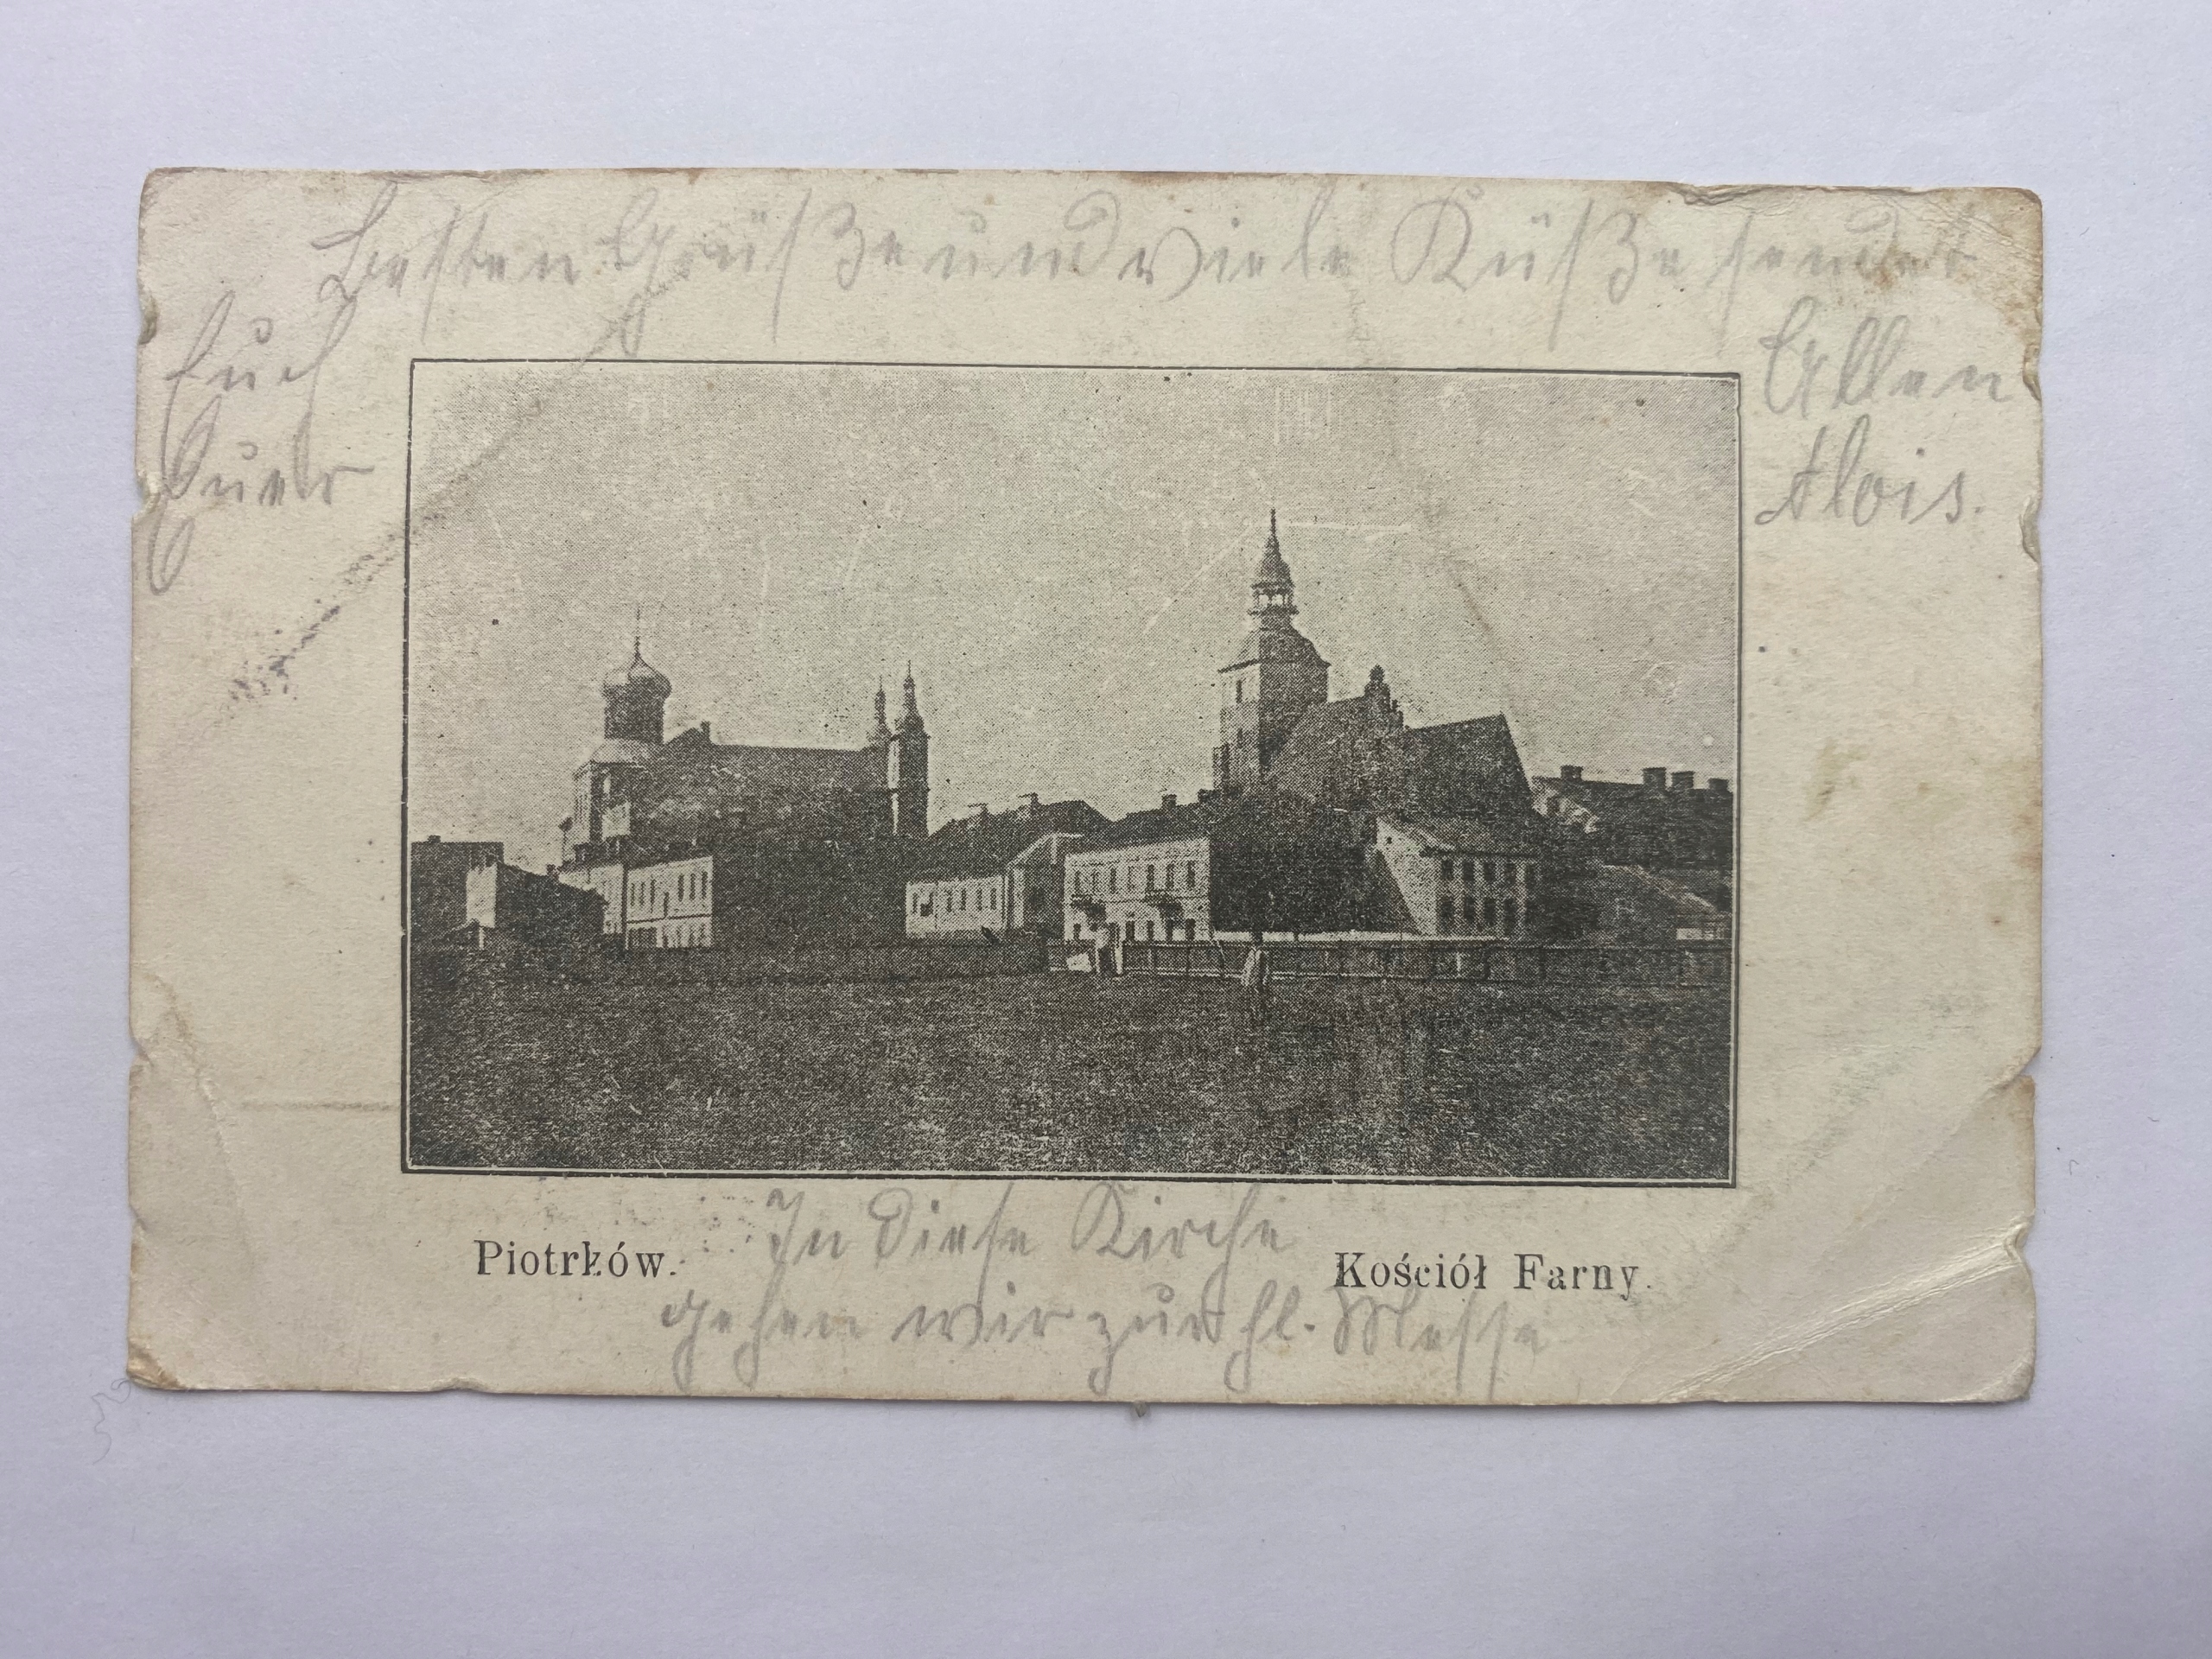 Besten Grüße und viele Küße sendet
Euch Allen
Euer Alois.
Piotrków. In diese Kirche Kościół Farny.
gehen wir zur hl. Messe